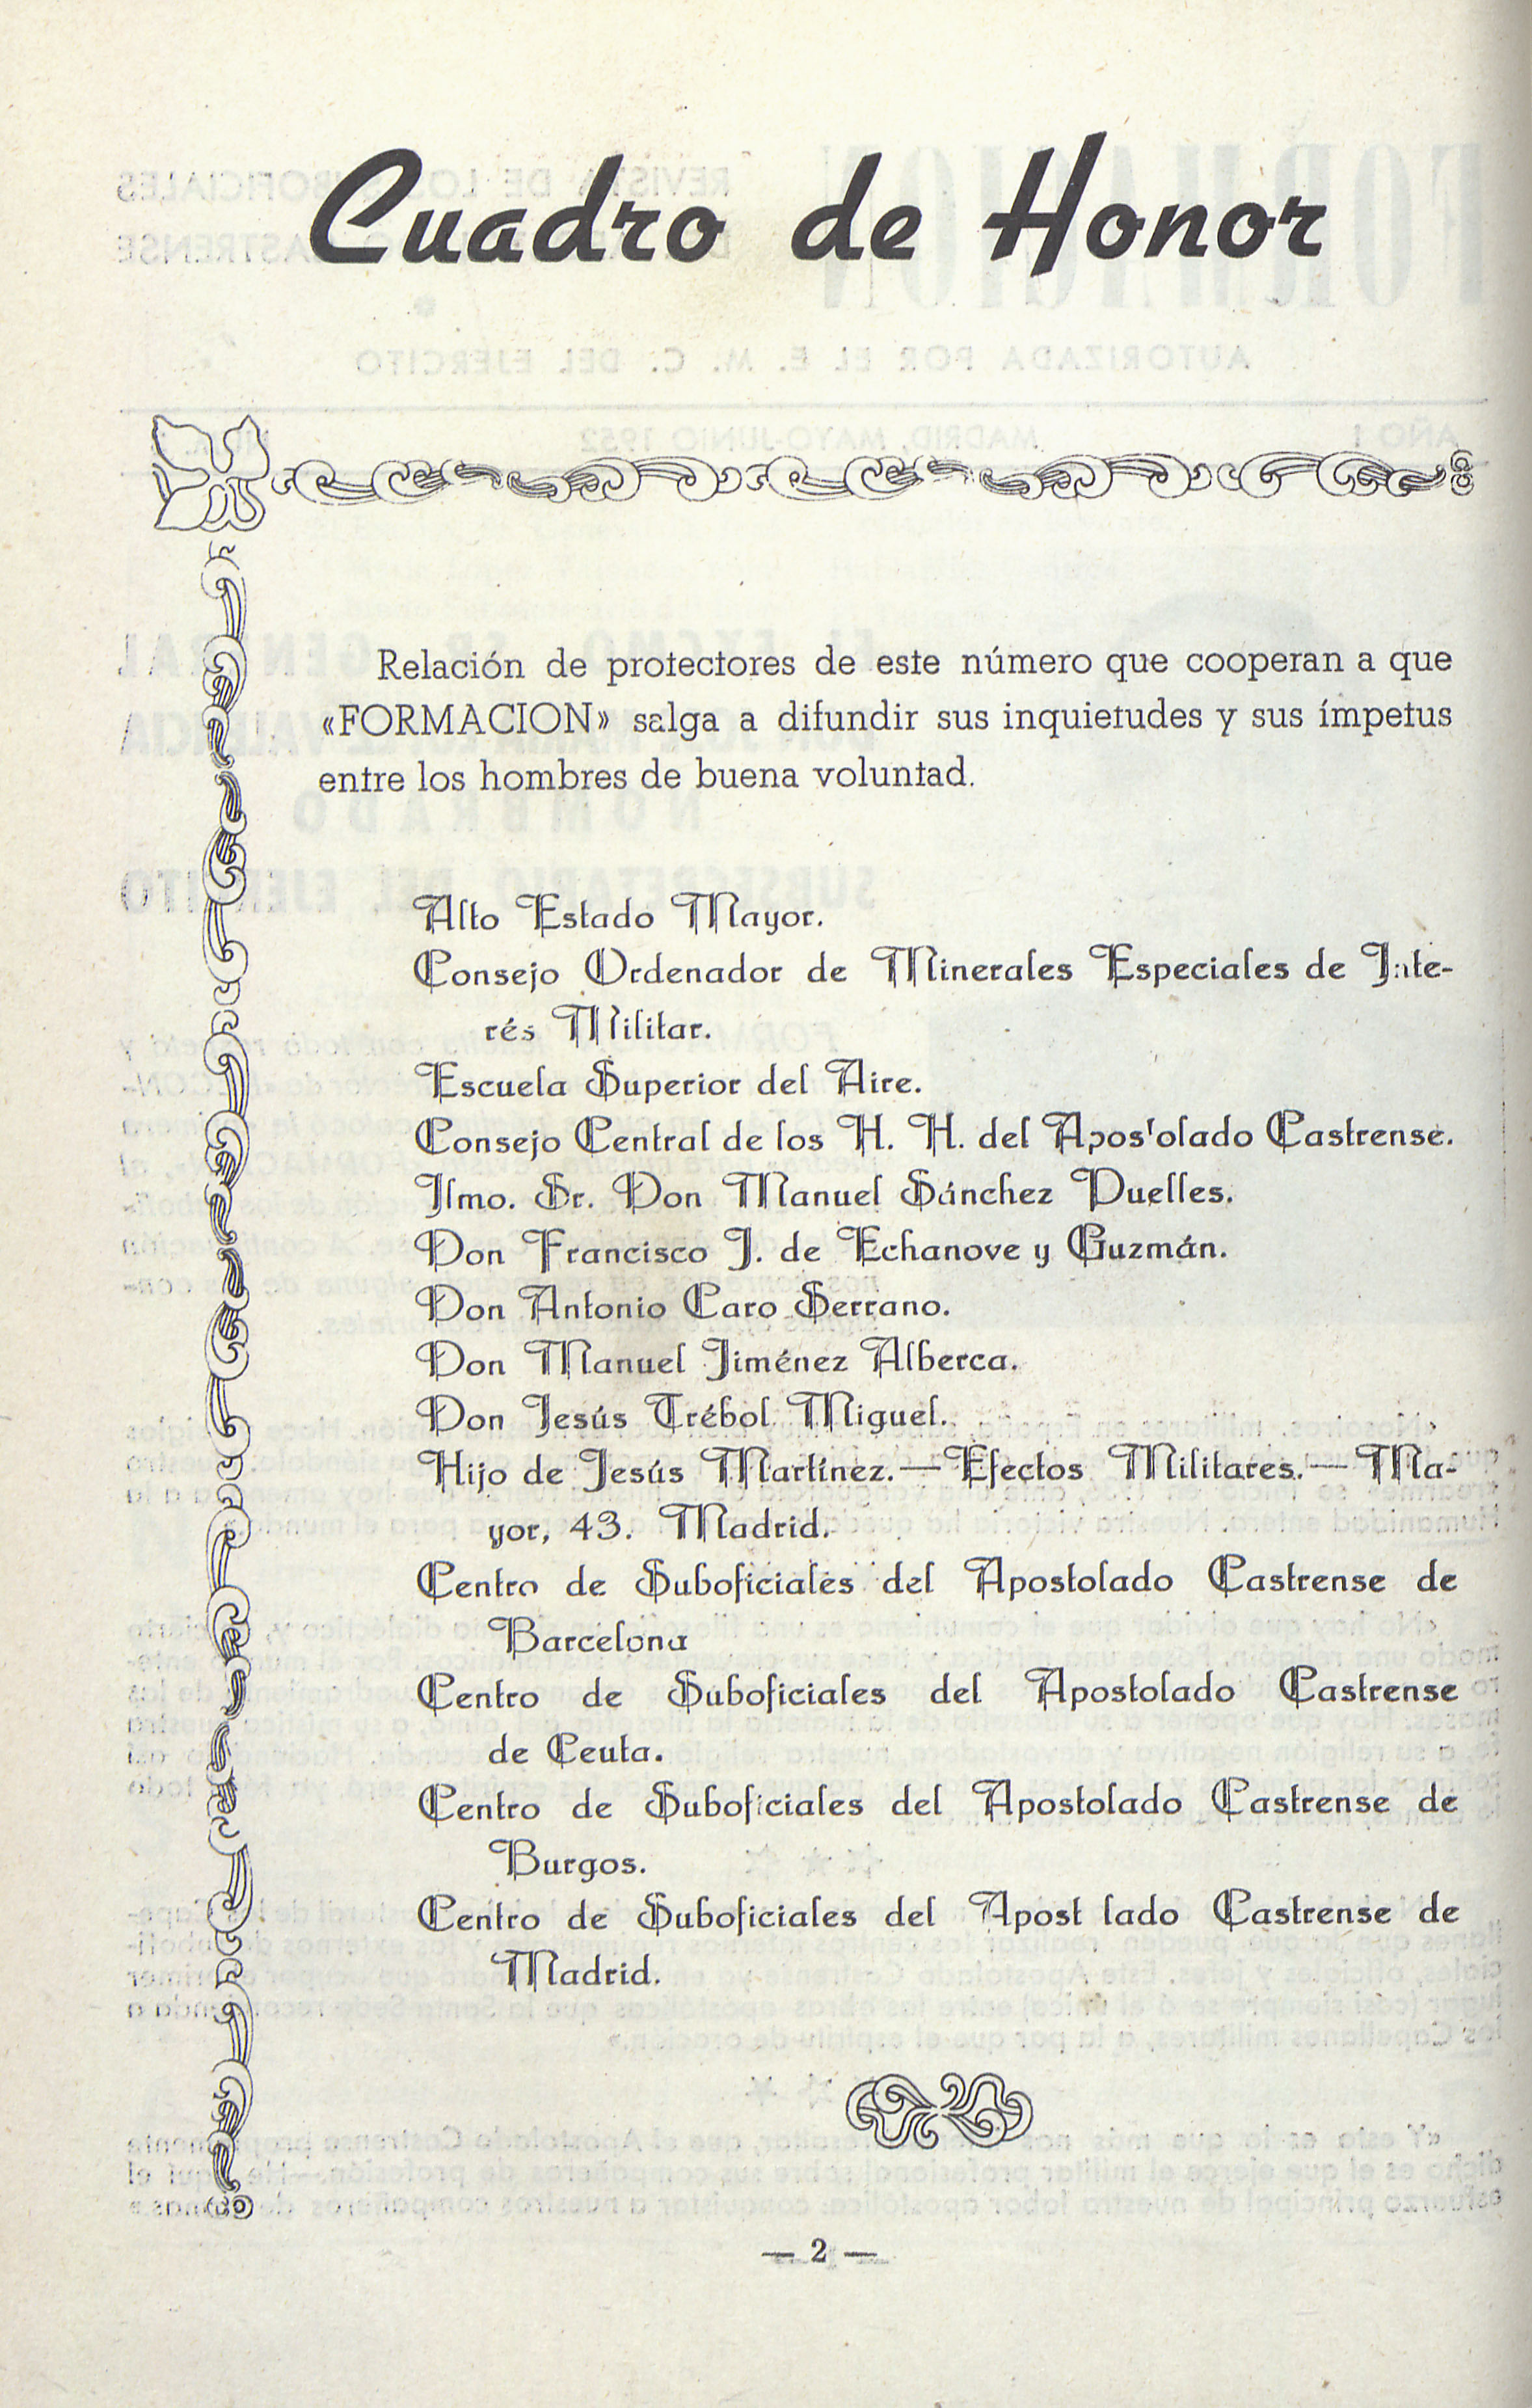 Cuadro de Honor
Relación de protectores de este número que cooperan a que
«FORMACION» salga a difundir sus inquietudes y sus ímpetus
entre los hombres de buena voluntad.
Alto Estado Mayor.
Consejo Ordenador de Minerales Especiales de Inte-
rés Militar.
Escuela Superior del Aire.
Consejo Central de los H. H. del Apostolado Castrense.
Ilmo. Sr. Don Manuel Sánchez Puelles.
Don Francisco J. de Echanove y Guzmán.
Don Antonio Caro Serrano.
Don Manuel Jiménez Alberca.
Don Jesús Trébol Miguel.
Hijo de Jesús Martínez.—Efectos Militares.—Ma-
yor, 43. Madrid.
Centro de Suboficiales del Apostolado Castrense de
Barcelona
Centro de Suboficiales del Apostolado Castrense
de Ceuta.
Centro de Suboficiales del Apostolado Castrense de
Burgos.
Centro de Suboficiales del Apost lado Castrense de
Madrid.
— 2 —